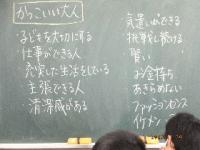 かっこいい大人
・子どもを大切にする
・仕事ができる人
・充実した生活をしている
・主張できる人
・清潔感がある
気遣いができる
挑戦し続ける
賢い
お金持ち
あきらめない
ファッションセンス
イケメン